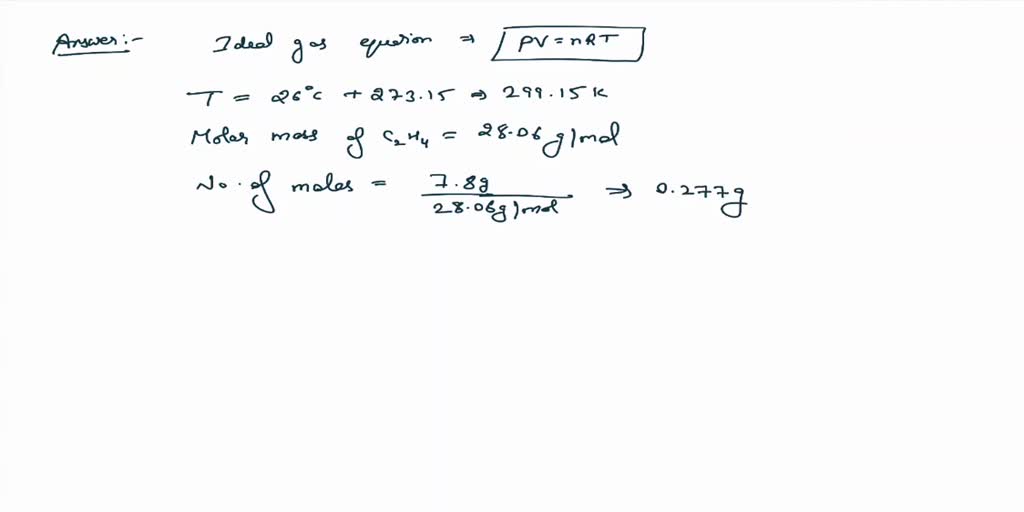 Answer:- Ideal gas equation ⇒ PV = nRT
T = 26°C + 273.15 ⇒ 299.15 K
Molar mass of C₂H₄ = 28.06 g/mol
No. of moles = 7.8g / 28.06g/mol ⇒ 0.277g